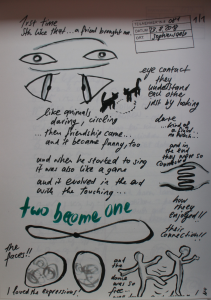 1st time
She like that... a friend brought me
1/1
eye contact
they
understand
each other
just by looking
like animals
daring, circling
... then friendship came...
and it became funny, too
dare
kind of
and in the
end they
and when he started to sing
it was also like a game
and it evolved in the end
with the touching...
two become one
how
they
enjoyed!!
their
connection!!
the
faces!!
I loved the expressions!
and
the
dance
was so
free